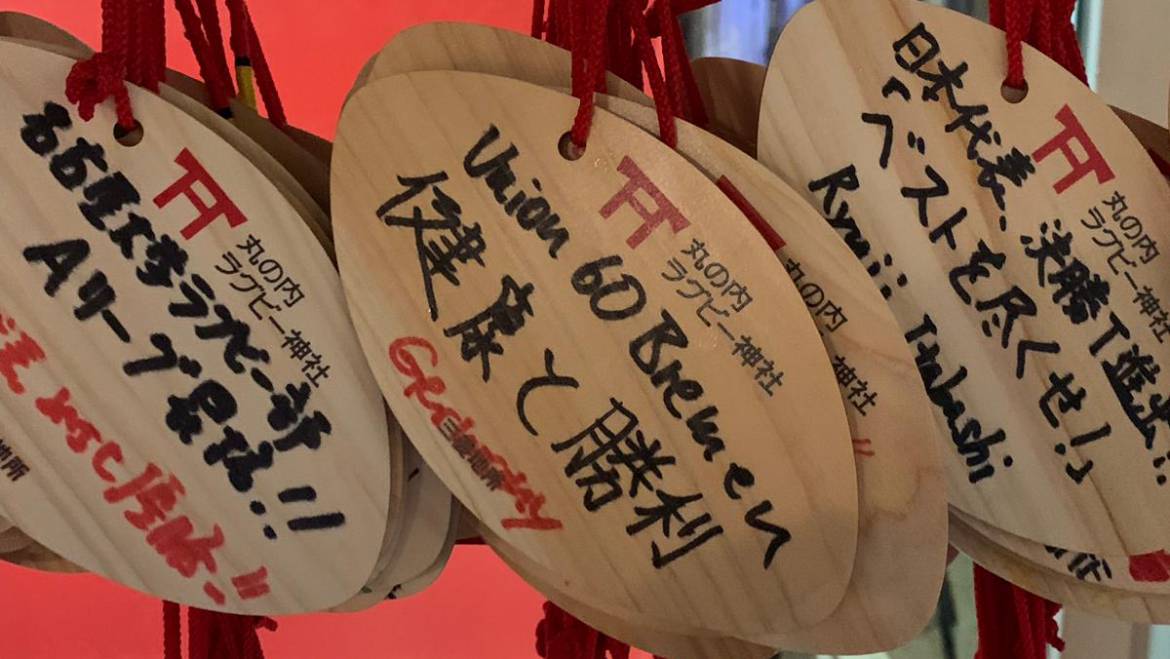 名古屋大学ラグビー部
Aリーグ昇格!!
丸の内
ラグビー神社
地所
Union 60 Bremen
健康と勝利
丸の内
ラグビー神社
Germany
三菱地所
丸の内
神社
日本代表、決勝T進出!!
ベストを尽くせ!!
Ryuji Itabashi
丸の内
ラグビー神社